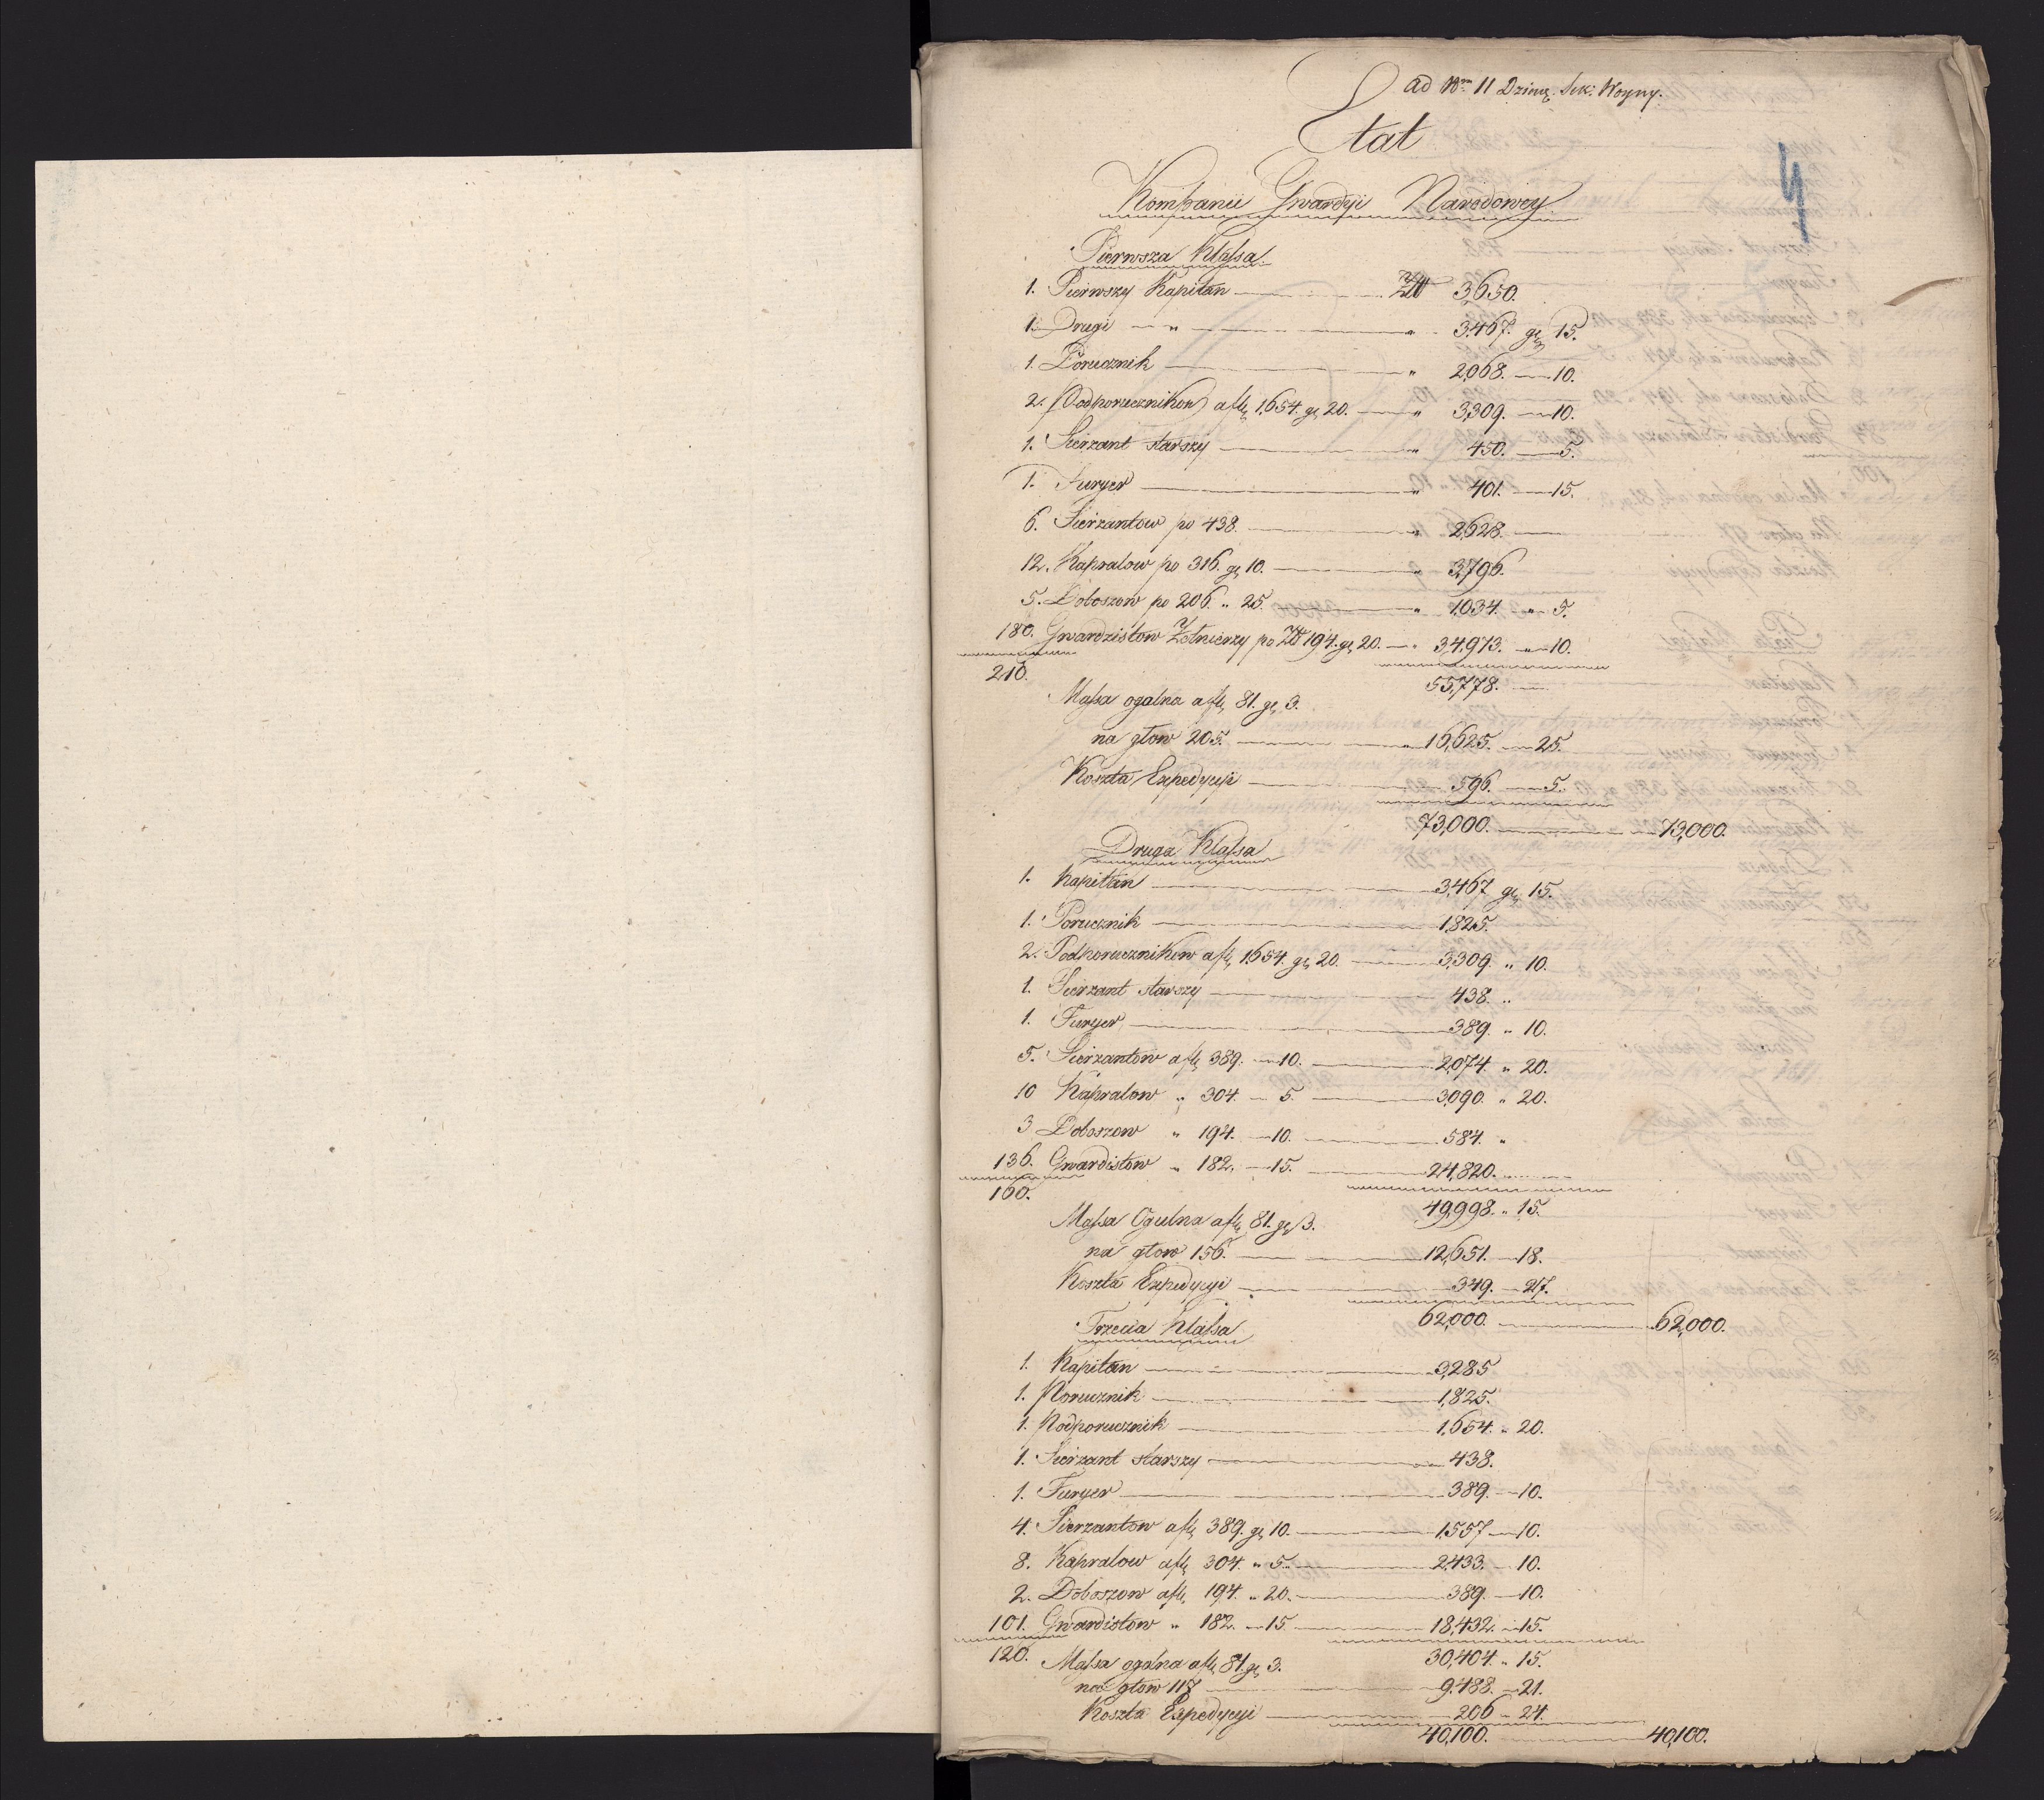 ad Nrm 11 Dzienę. Sek: Woyny.
4
Etat
Kompanii Gwardyi Narodowey
Pierwsza Klassa
1. Pierwszy Kapitan — Złł 3,650.
1. Drugi — „ — „ 3,467. gr, 15.
1. Porucznik — „ 2,068. — 10.
2. Podporucznikow a fl, 1,654. gr, 20. — „ 3,309. — 10.
1. Sierzant starszy — „ 450. — 5.
1. Furyer — „ 401. — 15.
6. Sierzantow po 438. — „ 2,628. —
12. Kapralow po 316. gr, 10. — „ 3,796.
5. Doboszow po 206. „ 25. — „ 1,034. „ 5.
180. Gwardzistow Żołnierzy po Złł 194. gr, 20. — „ 34,973. „ 10.
210. 55,778. —
Massa ogalna a fl, 81. gr, 3.
na głow 205. — „ 16,625. — 25.
Koszta Expedycyi — 596. — 5.
73,000. — 73,000.
Druga Klassa
1. Kapitan — 3,467 gr, 15.
1. Porucznik — 1,825.
2. Podporucznikow a fl, 1,654. gr, 20. — 3,309. „ 10.
1. Sierzant starszy — 438. „
1. Furyer — 389. „ 10.
5. Sierzantow a fl, 389. — 10. — 2,074. „ 20.
10 Kapralow „ 304. — 5. — 3,090. „ 20.
3 Doboszow „ 194. — 10. — 584. „
136. Gwardistow „ 182. — 15. — 24,820. —
160. 49,998. „ 15.
Massa Ogulna a fl, 81. gr, 3.
na głow 156. — 12,651. — 18.
Koszta Expedycyi — 349. — 27.
62,000. — 62,000.
Trzecia Klassa
1. Kapitan — 3,285
1. Porucznik — 1,825.
1. Podporucznik — 1,654. „ 20.
1. Sierzant starszy — 438.
1. Furyer — 389. — 10.
4. Sierzantow a fl, 389. gr, 10. — 1,557 — 10.
8. Kapralow a fl, 304. „ 5. — 2,433. — 10.
2. Doboszow a fl, 194. „ 20. — 389. — 10.
101. Gwardistow „ 182. — 15. — 18,432. — 15.
120. 30,404. „ 15.
Massa ogolna a fl, 81. gr, 3.
na głow 117 — 9,488. — 21.
Koszta Expedycyi — 206 — 24.
40,100. — 40,100.